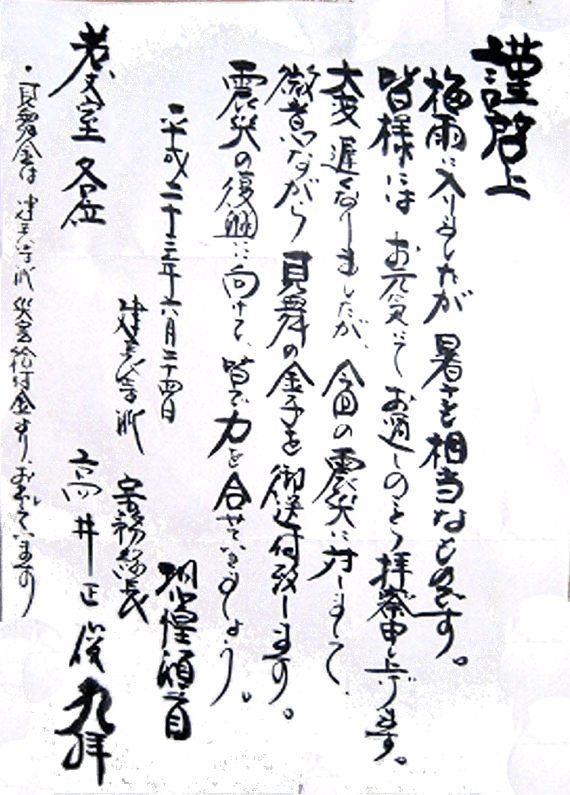 謹啓上
梅雨に入りましたが 暑さも相当なものです。
皆様には お元気にて お過しのこと 拝察申し上げます。
大変 遅くなりましたが、今回の震災に対しまして、
微意ながら 見舞の金子を御送付致します。
震災の復興に向けて、皆で力を合せていきましょう。
平成二十三年六月二十四日
惶惶頓首
建長寺派 宗務総長
高井正俊 九拝
各位
・見舞金は 建長寺派 災害給付金より、おくっています